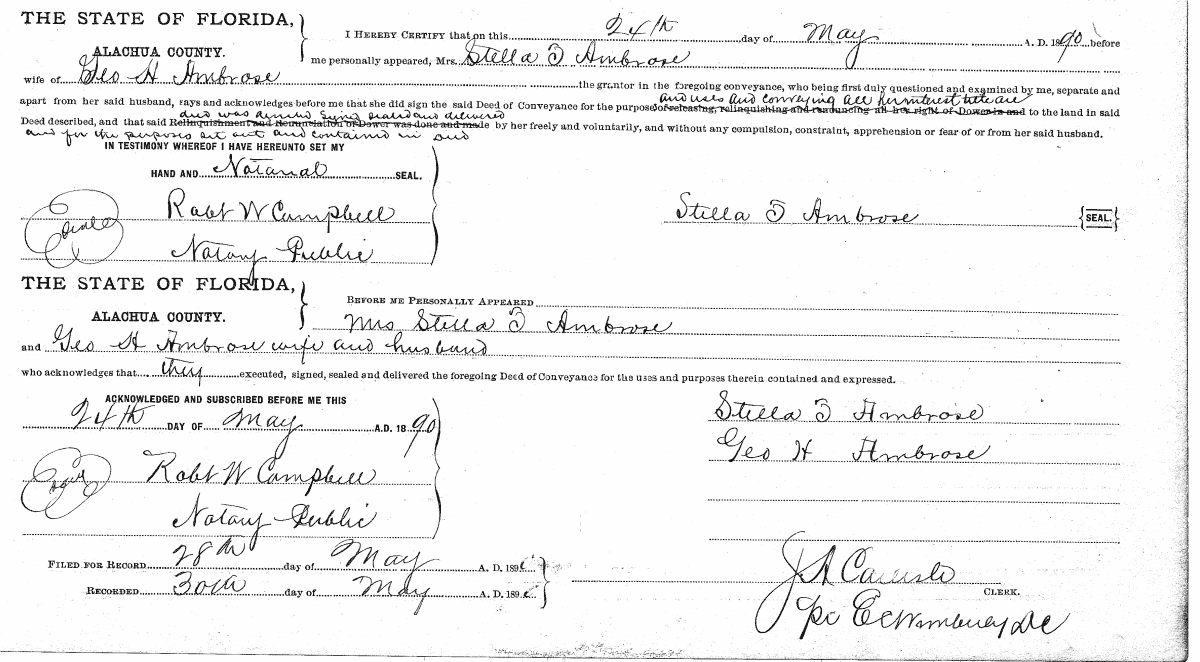 THE STATE OF FLORIDA,
ALACHUA COUNTY.
I HEREBY CERTIFY that on this 24th day of May A. D. 1890 before
me personally appeared, Mrs. Stella F Ambrose
wife of Geo H Ambrose the grantor in the foregoing conveyance, who being first duly questioned and examined by me, separate and
and uses and conveying all her interest
apart from her said husband, says and acknowledges before me that she did sign the said Deed of Conveyance for the purpose of releasing, relinquishing and renouncing all her right of Dower in and to the land in said
deed was signed sealed and delivered
Deed described, and that said Relinquishment and Renunciation of Dower was done and made by her freely and voluntarily, and without any compulsion, constraint, apprehension or fear of or from her said husband.
and for the purposes set out and contained in said
IN TESTIMONY WHEREOF I HAVE HEREUNTO SET MY
HAND AND Notarial SEAL.
Seal
Robt W Campbell
Notary Public
Stella F Ambrose SEAL.
THE STATE OF FLORIDA,
ALACHUA COUNTY.
BEFORE ME PERSONALLY APPEARED
Mrs Stella F Ambrose
and Geo H Ambrose wife and husband
who acknowledges that they executed, signed, sealed and delivered the foregoing Deed of Conveyance for the uses and purposes therein contained and expressed.
ACKNOWLEDGED AND SUBSCRIBED BEFORE ME THIS
24th DAY OF May A.D. 1890
Robt W Campbell
Notary Public
Stella F Ambrose
Geo H Ambrose
FILED FOR RECORD 28th day of May A. D. 189
RECORDED 30th day of May A. D. 189
CLERK.